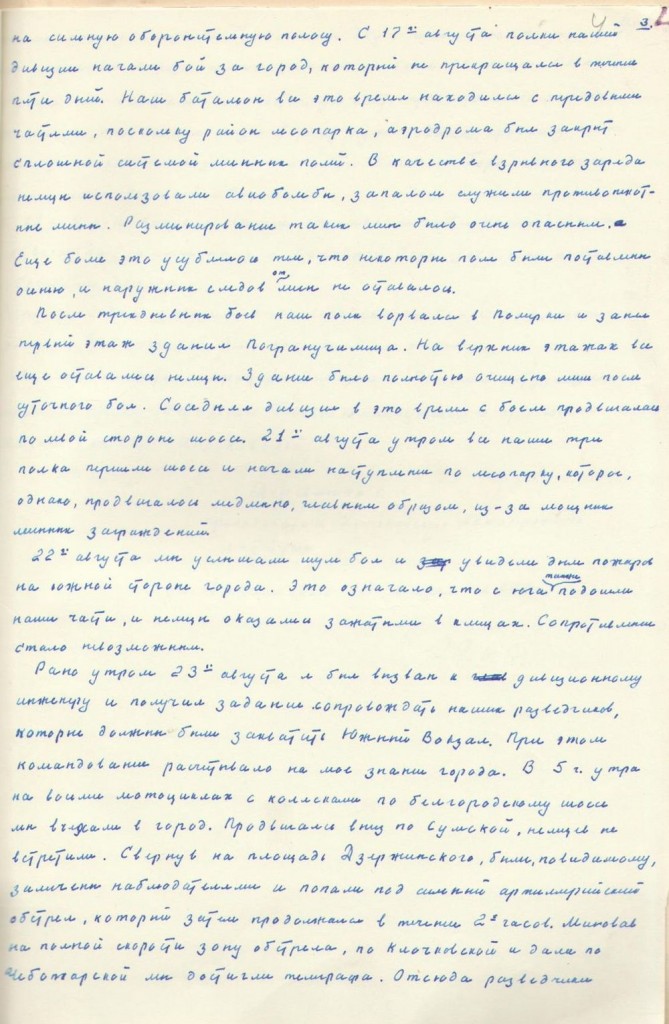 4 3.
на сильную оборонительную полосу. С 17го августа полки нашей
дивизии начали бой за город, который не прекращался в течение
пяти дней. Наш батальон все это время находился с передовыми
частями, поскольку район лесопарка, аэродрома был закрыт
сплошной системой минных полей. В качестве взрывного заряда
немцы использовали авиабомбы, запалом служили противопехот-
ные мины. Разминирование таких мин было очень опасным.
Еще более это усублялось тем, что некоторые поля были поставлены
осенью, и наружных следов от мин не оставалось.
После трехдневных боев наш полк ворвался в Померки и занял
первый этаж здания Погранучилища. На верхних этажах все
еще оставались немцы. Здание было полностью очищено лишь после
суточного боя. Соседняя дивизия в это время с боем продвигалась
по левой стороне шоссе. 21го августа утром все наши три
полка перешли шоссе и начали наступление по лесопарку, которое,
однако, продвигалось медленно, главным образом, из-за мощных
минных заграждений.
22го августа мы услышали шум боя и увидели дым пожаров
на южной стороне города. Это означало, что с юга также подошли
наши части, и немцы оказались зажатыми в клещах. Сопротивление
стало невозможным.
Рано утром 23го августа я был вызван к дивизионному
инженеру и получил задание сопровождать наших разведчиков,
которые должны были захватить Южный Вокзал. При этом
командование расчитывало на мое знание города. В 5 г. утра
на восьми мотоциклах с колясками по белгородскому шоссе
мы въехали в город. Продвигаясь вниз по Сумской, немцев не
встретили. Свернув на площадь Дзержинского, были, повидимому,
замечены наблюдателями и попали под сильный артиллерийский
обстрел, который затем продолжался в течении 2х часов. Миновав
на полной скорости зону обстрела, по Клочковской и далее по
Чеботарской мы достигли телеграфа. Отсюда разведчики